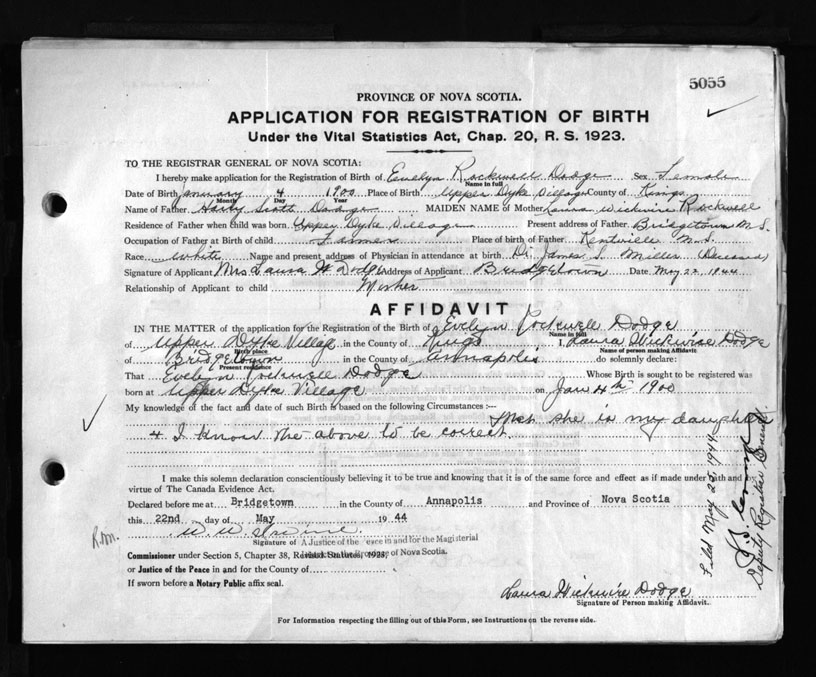 5055
PROVINCE OF NOVA SCOTIA.
APPLICATION FOR REGISTRATION OF BIRTH
Under the Vital Statistics Act, Chap. 20, R. S. 1923.
TO THE REGISTRAR GENERAL OF NOVA SCOTIA:
I hereby make application for Registration of Birth of Evelyn Rockwell Dodge Sex Female
Name in full
Date of Birth January 4 1900 Place of Birth Upper Dyke Village County of Kings
Month Day Year
Name of Father Harry Scott Dodge MAIDEN NAME of Mother Laura Wickwire Rockwell
Residence of Father when child was born Upper Dyke Village Present address of Father Bridgetown N.S.
Occupation of Father at Birth of child Farmer Place of birth of Father Kentville N.S.
Race White Name and present address of Physician in attendance at birth Dr. James S. Miller (Deceased)
Signature of Applicant Mrs Laura W Dodge Address of Applicant Bridgetown Date May 22 1944
Relationship of Applicant to child Mother
AFFIDAVIT
IN THE MATTER of the application for the Registration of the Birth of Evelyn Rockwell Dodge
Name in full
of Upper Dyke Village in the County of Kings I, Laura Wickwire Dodge
Birth place Name of person making Affidavit
of Bridgetown in the County of Annapolis do solemnly declare:
Present residence
That Evelyn Rockwell Dodge Whose Birth is sought to be registered was
born at Upper Dyke Village on Jan 4th 1900
My knowledge of the fact and date of such Birth is based on the following Circumstances :—
that she is my daughter
& I know the above to be correct.
I make this solemn declaration conscientiously believing it to be true and knowing that it is of the same force and effect as if made under oath and
virtue of The Canada Evidence Act.
Declared before me at Bridgetown in the County of Annapolis and Province of Nova Scotia
this 22nd day of May 1944
Signature of A Justice of the Peace in and for the Magisterial
Commissioner under Section 5, Chapter 38, Revised Statutes, 1923, of Nova Scotia.
or Justice of the Peace in and for the County of
If sworn before a Notary Public affix seal.
Rom.
Laura Wickwire Dodge
Signature of Person making Affidavit.
For Information respecting the filling out of this Form, see Instructions on the reverse side.
Filed May 25, 1944
Deputy Registrar General.